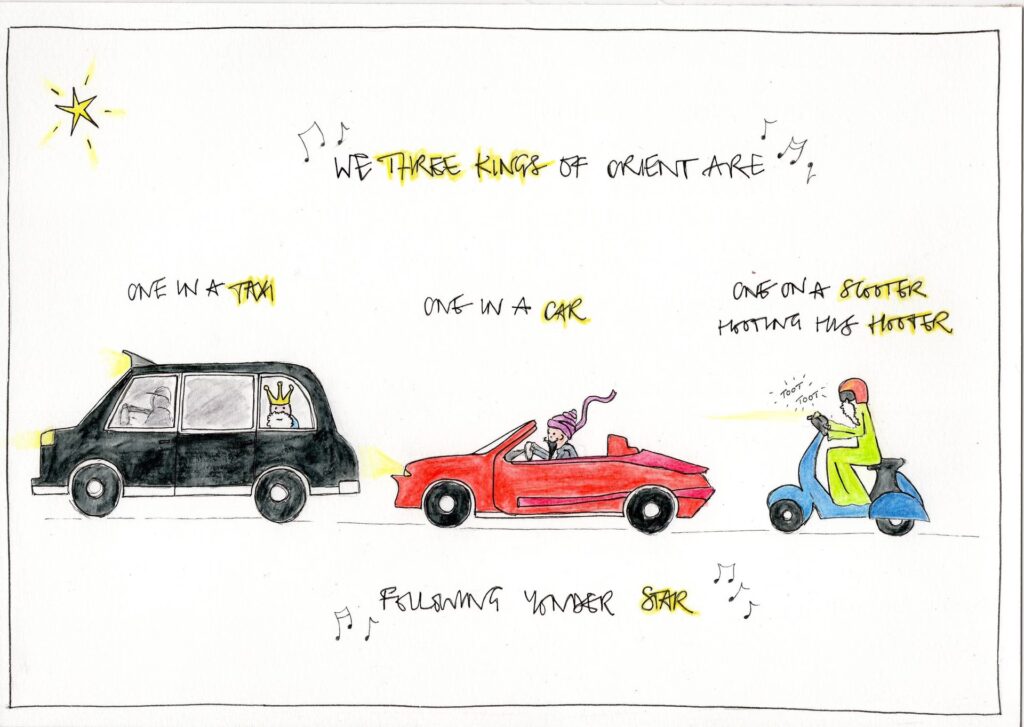 WE THREE KINGS OF ORIENT ARE
ONE IN A TAXI
ONE IN A CAR
ONE ON A SCOOTER
HOOTING HIS HOOTER
TOOT
TOOT
FOLLOWING YONDER STAR